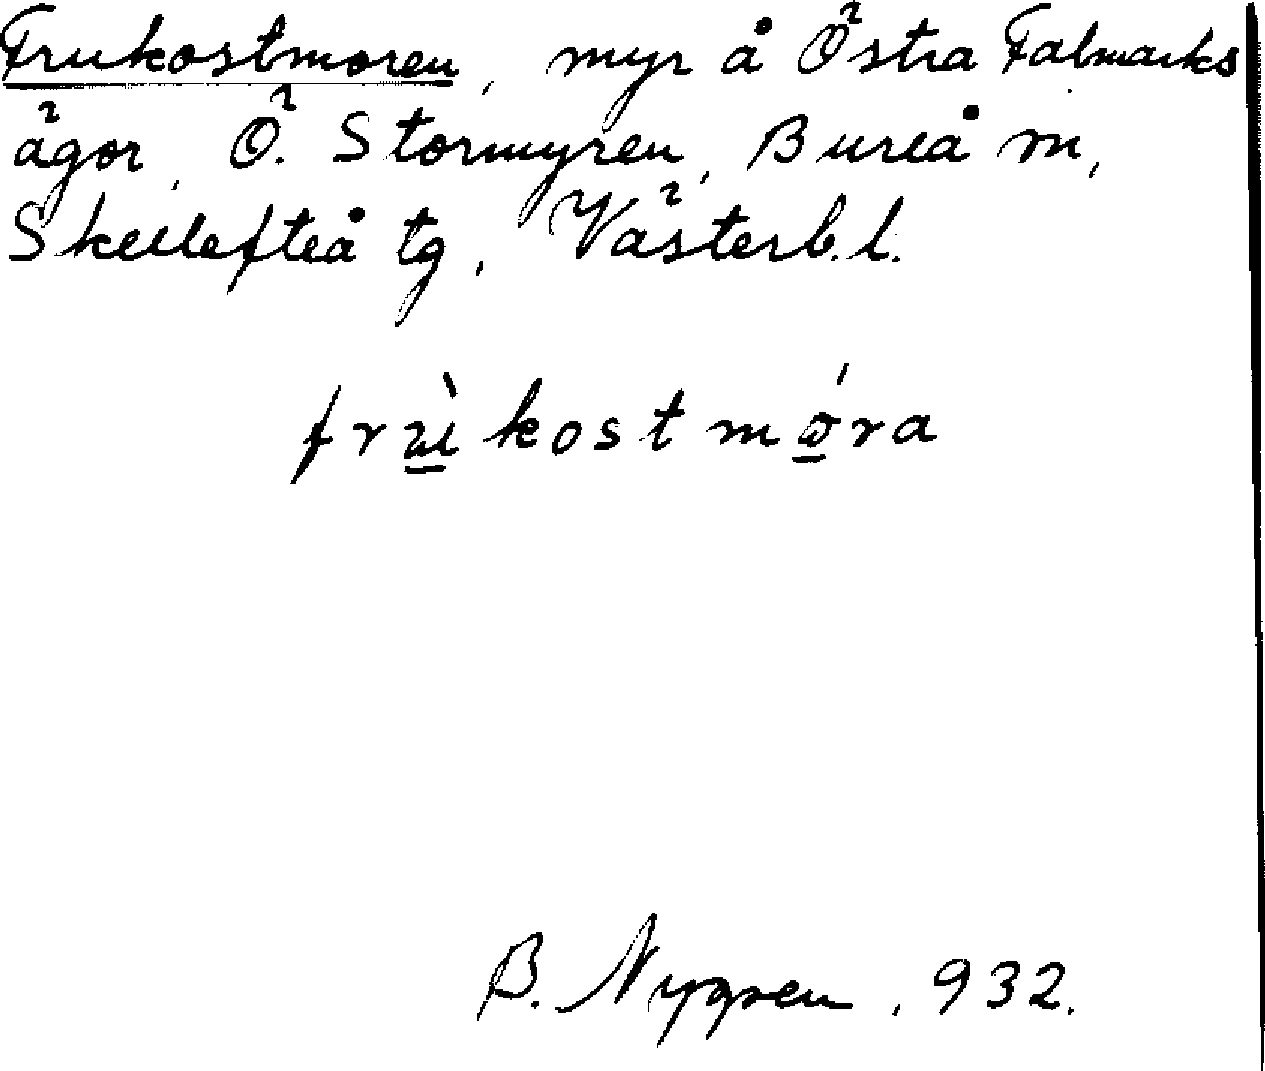 Frukostmoren, myr å Östra Falmarks
ägor, Ö. Stormyren, Bureå m,
Skellefteå tg, Västerb.l.
frùkostmǿra
B. Nygren, 932.